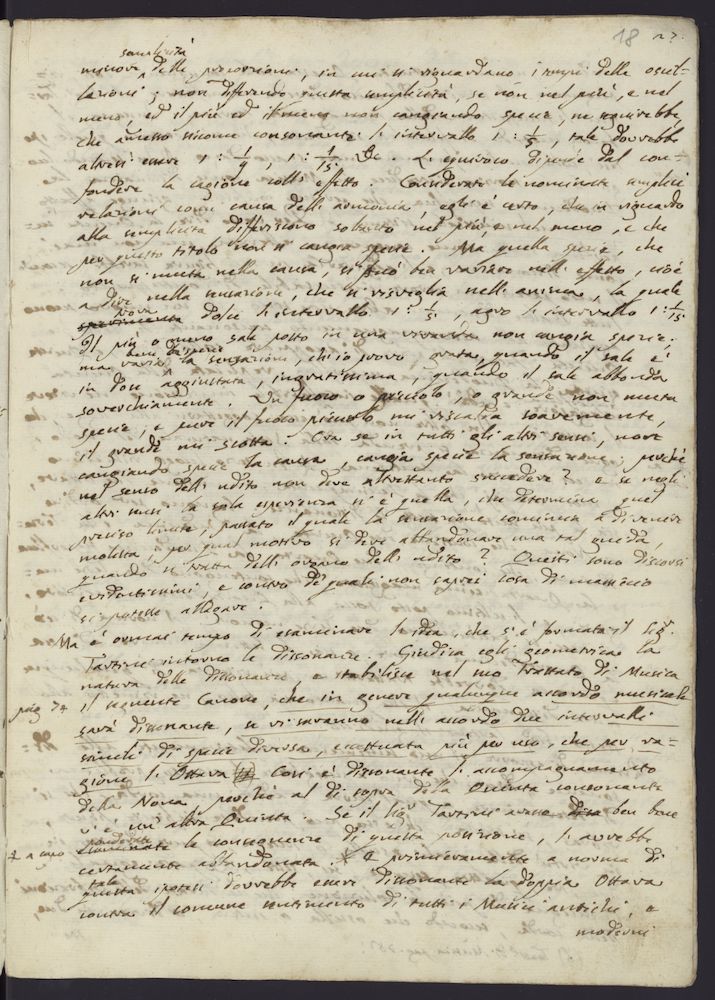 18 27.
semplicità
minore delle proporzioni, in cui si riguardano i tempi delle oscil-
lazioni; non differendo questa semplicità, se non nel più, e nel
meno, ed il più ed il meno non cangiando specie, ne seguirebbe
che ammesso siccome consonante l'intervallo 1 : 1/5, tale dovrebbe
altresì essere 1 : 1/9, 1 : 1/15 &c. L'equivoco dipende dal con-
fondere la cagione coll'effetto. Considerate le nominate semplici
relazioni come causa dell'armonia, egli è certo, che in riguardo
alla semplicità differiscono soltanto nel più e nel meno, e che
per questo titolo non si cangia specie. Ma quella specie, che
non si muta nella causa, si può ben variare nell'effetto, cioè
a dire nella sensazione, che si risveglia nell'anima, la quale
trova
sperimenta dolce l'intervallo 1 : 1/5, agro l'intervallo 1 : 1/15
Il più o meno sale posto in una vivanda non cangia specie;
bensì di specie
ma varia la sensazione, ch'io provo, grata, quando il sale è
in dose aggiustata, ingratissima, quando il sale abbonda
soverchiamente. Un fuoco o piccolo, o grande non muta
specie, e pure il fuoco piccolo mi riscalda soavemente,
il grande mi scotta. Ora se in tutti gli altri sensi, non
cangiando specie la causa, cangia specie la sensazione; perchè
nel senso dell'udito non deve altrettanto succedere? e se negli
altri sensi la sola esperienza si è quella, che determina quel
preciso limite, passato il quale la sensazione comincia a divenire
molesta, per qual motivo si deve abbandonare una tal guida,
quando si tratta dell'organo dell'udito? Questi sono discorsi
evidentissimi, e contro de' quali non saprei cosa di massiccio
si potesse allegare.
Ma è ormai tempo di esaminare l'idea, che s'è formata il Sigr.
Tartini intorno le dissonanze. Giudica egli geometrica la
natura delle dissonanze, e stabilisce nel suo Trattato di Musica
pag. 74 il seguente Canone, che in genere qualunque accordo musicale
sarà dissonante, se vi saranno nell'accordo due intervalli
simili di specie diversa, eccettuata più per uso, che per ra-
gione l'Ottava. Così è dissonante l'accompagnamento
della Nona, perchè al di sopra della Quinta consonante
v'è un'altra Quinta. Se il Sigr. Tartini avesse ben bene
ponderate
esaminate le conseguenze di questa posizione, l'avrebbe
a capo certamente abbandonata. E primieramente a norma di
tale
questa ipotesi dovrebbe essere dissonante la doppia Ottava
contra il comune sentimento di tutti i Musici antichi, e
moderni